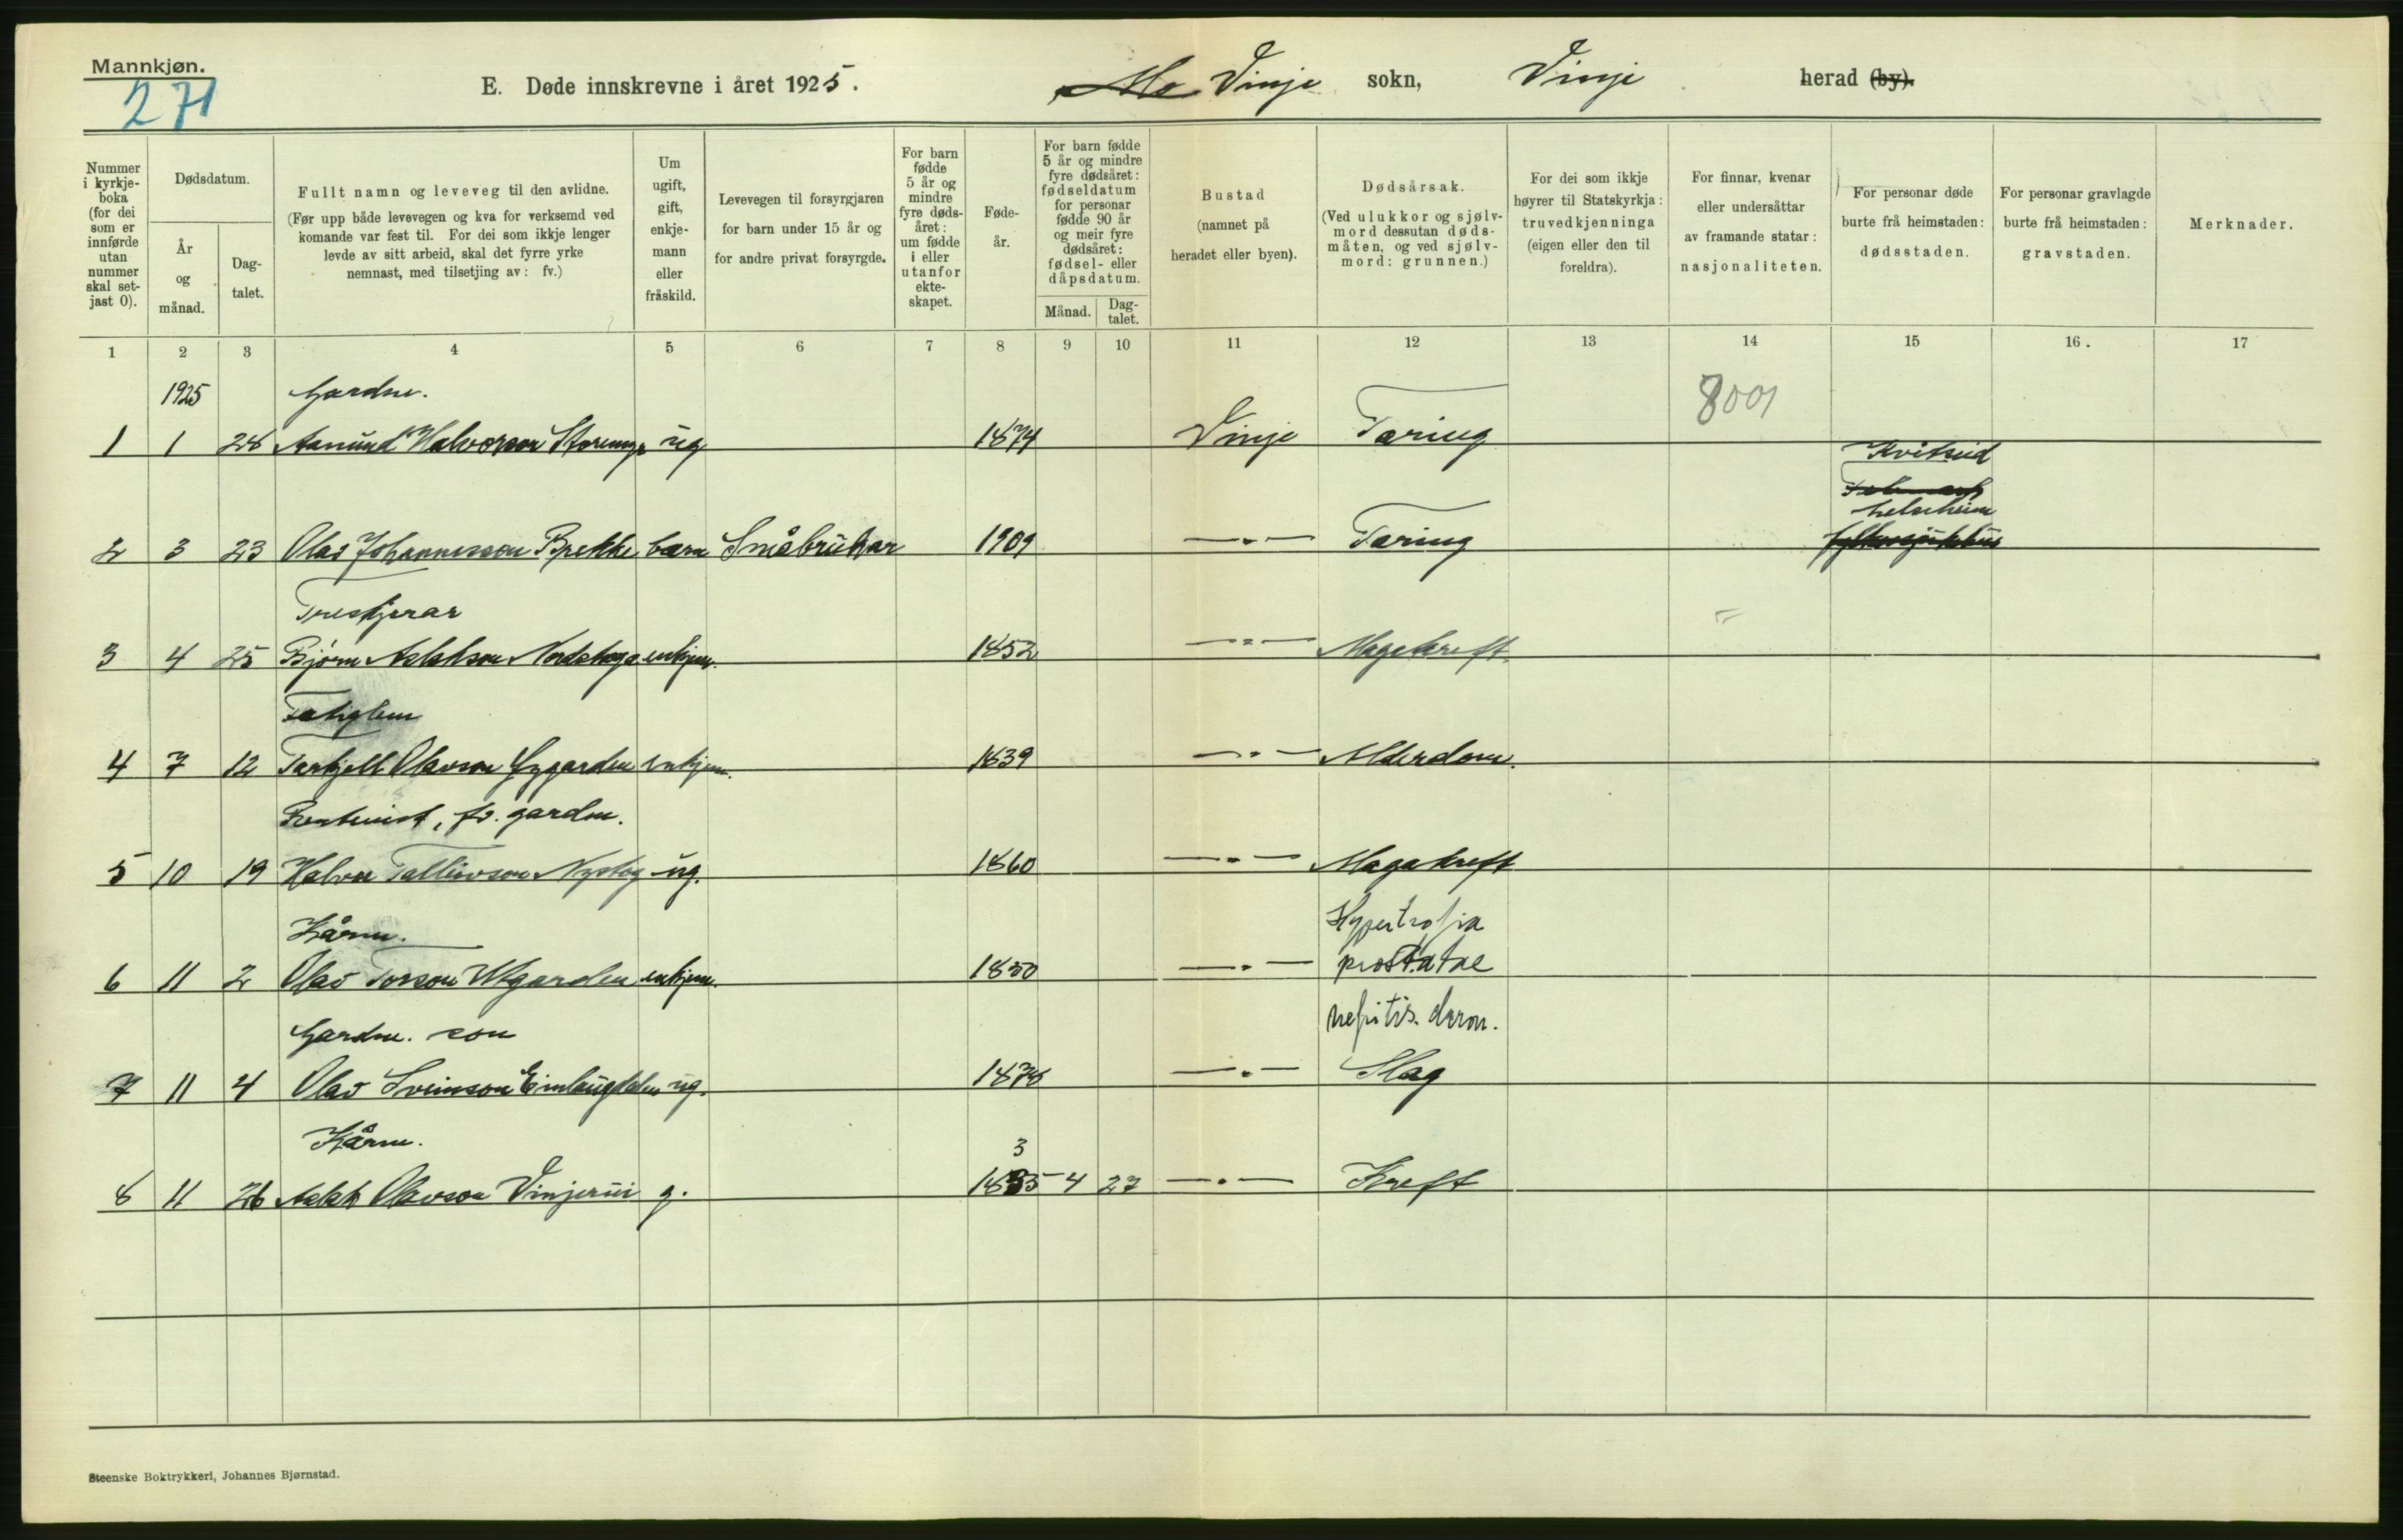 Mannkjøn.
271
E. Døde innskrevne i året 1925.
Mo Vinje sokn, Vinje herad (by).
Nummer i kyrkje-boka (for dei som er innførde utan nummer skal set-jast 0).
Dødsdatum.
År og månad.
Dag-talet.
Fullt namn og leveveg til den avlidne.
(Før upp både levevegen og kva for verksemd ved komande var fest til. For dei som ikkje lenger levde av sitt arbeid, skal det fyrre yrke nemnast, med tilsetjing av: fv.)
Um ugift, gift, enkje-mann eller fråskild.
Levevegen til forsyrgjaren for barn under 15 år og for andre privat forsyrgde.
For barn fødde 5 år og mindre fyre døds-året: um fødde i eller utanfor ekte-skapet.
Føde-år.
For barn fødde 5 år og mindre fyre dødsåret: fødseldatum for personar fødde 90 år og meir fyre dødsåret: fødsel- eller dåpsdatum.
Månad.
Dag-talet.
Bustad (namnet på heradet eller byen).
Dødsårsak.
(Ved ulukkor og sjølv-mord dessutan døds-måten, og ved sjølv-mord: grunnen.)
For dei som ikkje høyrer til Statskyrkja: truvedkjenninga (eigen eller den til foreldra).
For finnar, kvenar eller undersåttar av framande statar: nasjonaliteten.
For personar døde burte frå heimstaden: dødsstaden.
For personar gravlagde burte frå heimstaden: gravstaden.
Merknader.
1 2 3 4 5 6 7 8 9 10 11 12 13 14 15 16. 17
1925 Gardm. 8001
1 1 28 Aanund Halvorson ug 1874 Vinje Tæring
Kvitseid
Telemark
helseheim
2 3 23 Olav Johannesson Brekke barn Småbrukar 1909 —"— Tæring fylkessjukehus
Treskjerar
3 4 25 Bjørn Aslakson Nordstoga enkjem. 1852 —"— Magekreft.
Fatiglem
4 7 12 Tarkjell Olavson Lygarden enkjem. 1839 —"— Alderdom.
Rentenist, fv. gardm.
5 10 19 Halvor Tallievson Nystog ug. 1860 —"— Magakreft
Kårm. Hypertrofia
6 11 2 Olav Torson Utgarden enkjem. 1850 —"— prostatae
Gardm. son nefritis. chron.
7 11 4 Olav Sveinson ug. 1878 —"— Slag
Kårm. 3
8 11 26 Aslak Olavson Vinjerui g. 1835 4 27 —"— Kreft
Steenske Boktrykkeri, Johannes Bjørnstad.